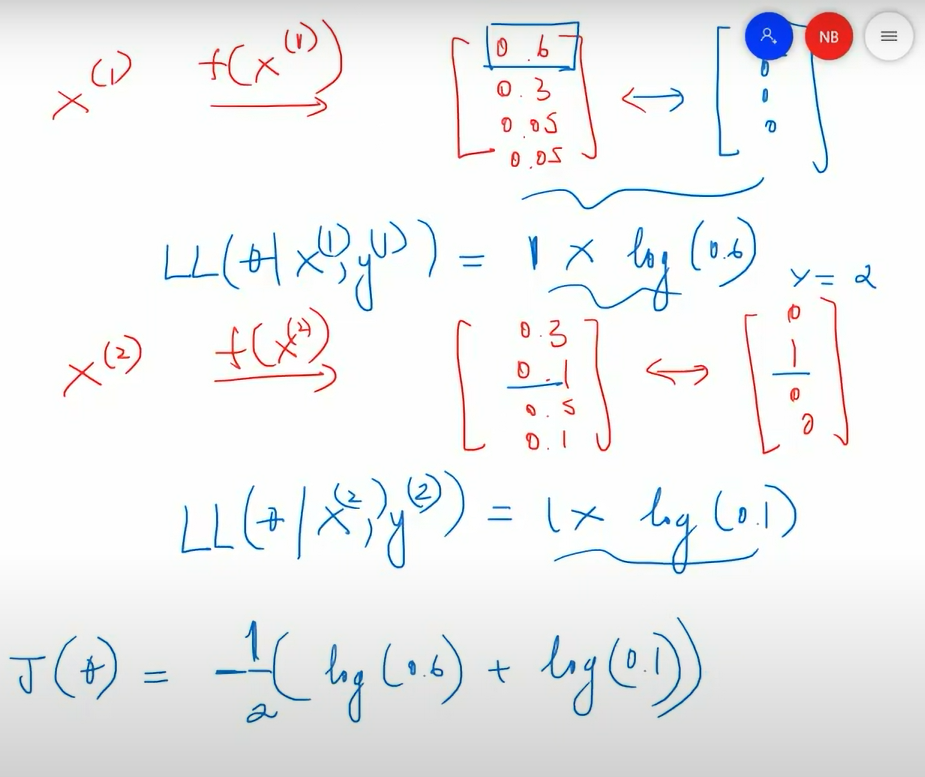 x^(1) f(x^(1)) [0.6 0.3 0.05 0.05] ↔ [0 0 0]
NB
LL(θ|x^(1), y^(1)) = 1 × log(0.6)
y = 2
x^(2) f(x^(2)) [0.3 0.1 0.5 0.1] ↔ [0 1 0 0]
LL(θ|x^(2), y^(2)) = 1 × log(0.1)
J(θ) = -1/2 (log(0.6) + log(0.1))